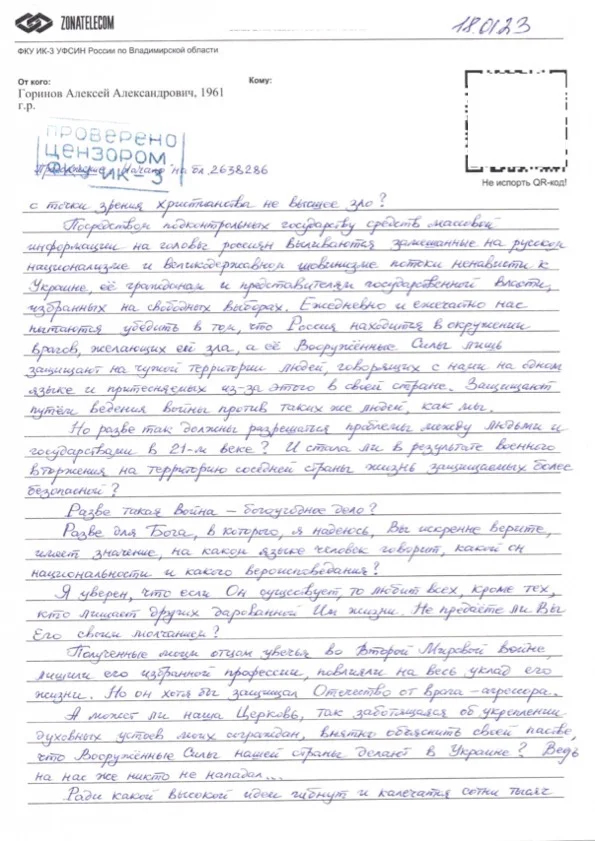 ZONATELECOM
18.01.23
ФКУ ИК-3 УФСИН России по Владимирской области
От кого:
Горинов Алексей Александрович, 1961
г.р.
Кому:
ПРОВЕРЕНО
ЦЕНЗОРОМ
ФКУ ИК-3
Продолжение. Начало на бл. 2638286
Не испорть QR-код!
с точки зрения христианства не высшее зло?
Посредством подконтрольных государству средств массовой
информации на головы россиян выливаются замешанные на русском
национализме и великодержавном шовинизме потоки ненависти к
Украине, её гражданам и представителям государственной власти,
избранных на свободных выборах. Ежедневно и ежечастно нас
пытаются убедить в том, что Россия находится в окружении
врагов, желающих ей зла, а её Вооружённые Силы лишь
защищают на чужой территории людей, говорящих с нами на одном
языке и притесняемых из-за этого в своей стране. Защищают
путём ведения войны против таких же людей, как мы.
Но разве так должны разрешатся проблемы между людьми и
государствами в 21-м веке? И стала ли в результате военного
вторжения на территорию соседней страны жизнь защищаемых более
безопасной?
Разве такая война – богоугодное дело?
Разве для Бога, в которого, я надеюсь, Вы искренне верите,
имеет значение, на каком языке человек говорит, какой он
национальности и какого вероисповедания?
Я уверен, что если Он существует, то любит всех, кроме тех,
кто лишает других дарованной Им жизни. Не предаёте ли Вы
Его своим молчанием?
Полученные моим отцом увечья во Второй Мировой войне,
лишили его избранной профессии, повлияли на весь уклад его
жизни. Но он хотя бы защищал Отечество от врага-агрессора.
А может ли наша Церковь, так заботящаяся об укреплении
духовных устоев моих сограждан, внятно объяснить своей пастве,
что Вооружённые Силы нашей страны делают в Украине? Ведь
на нас же никто не нападал...
Ради какой высокой идеи гибнут и калечатся сотни тысяч